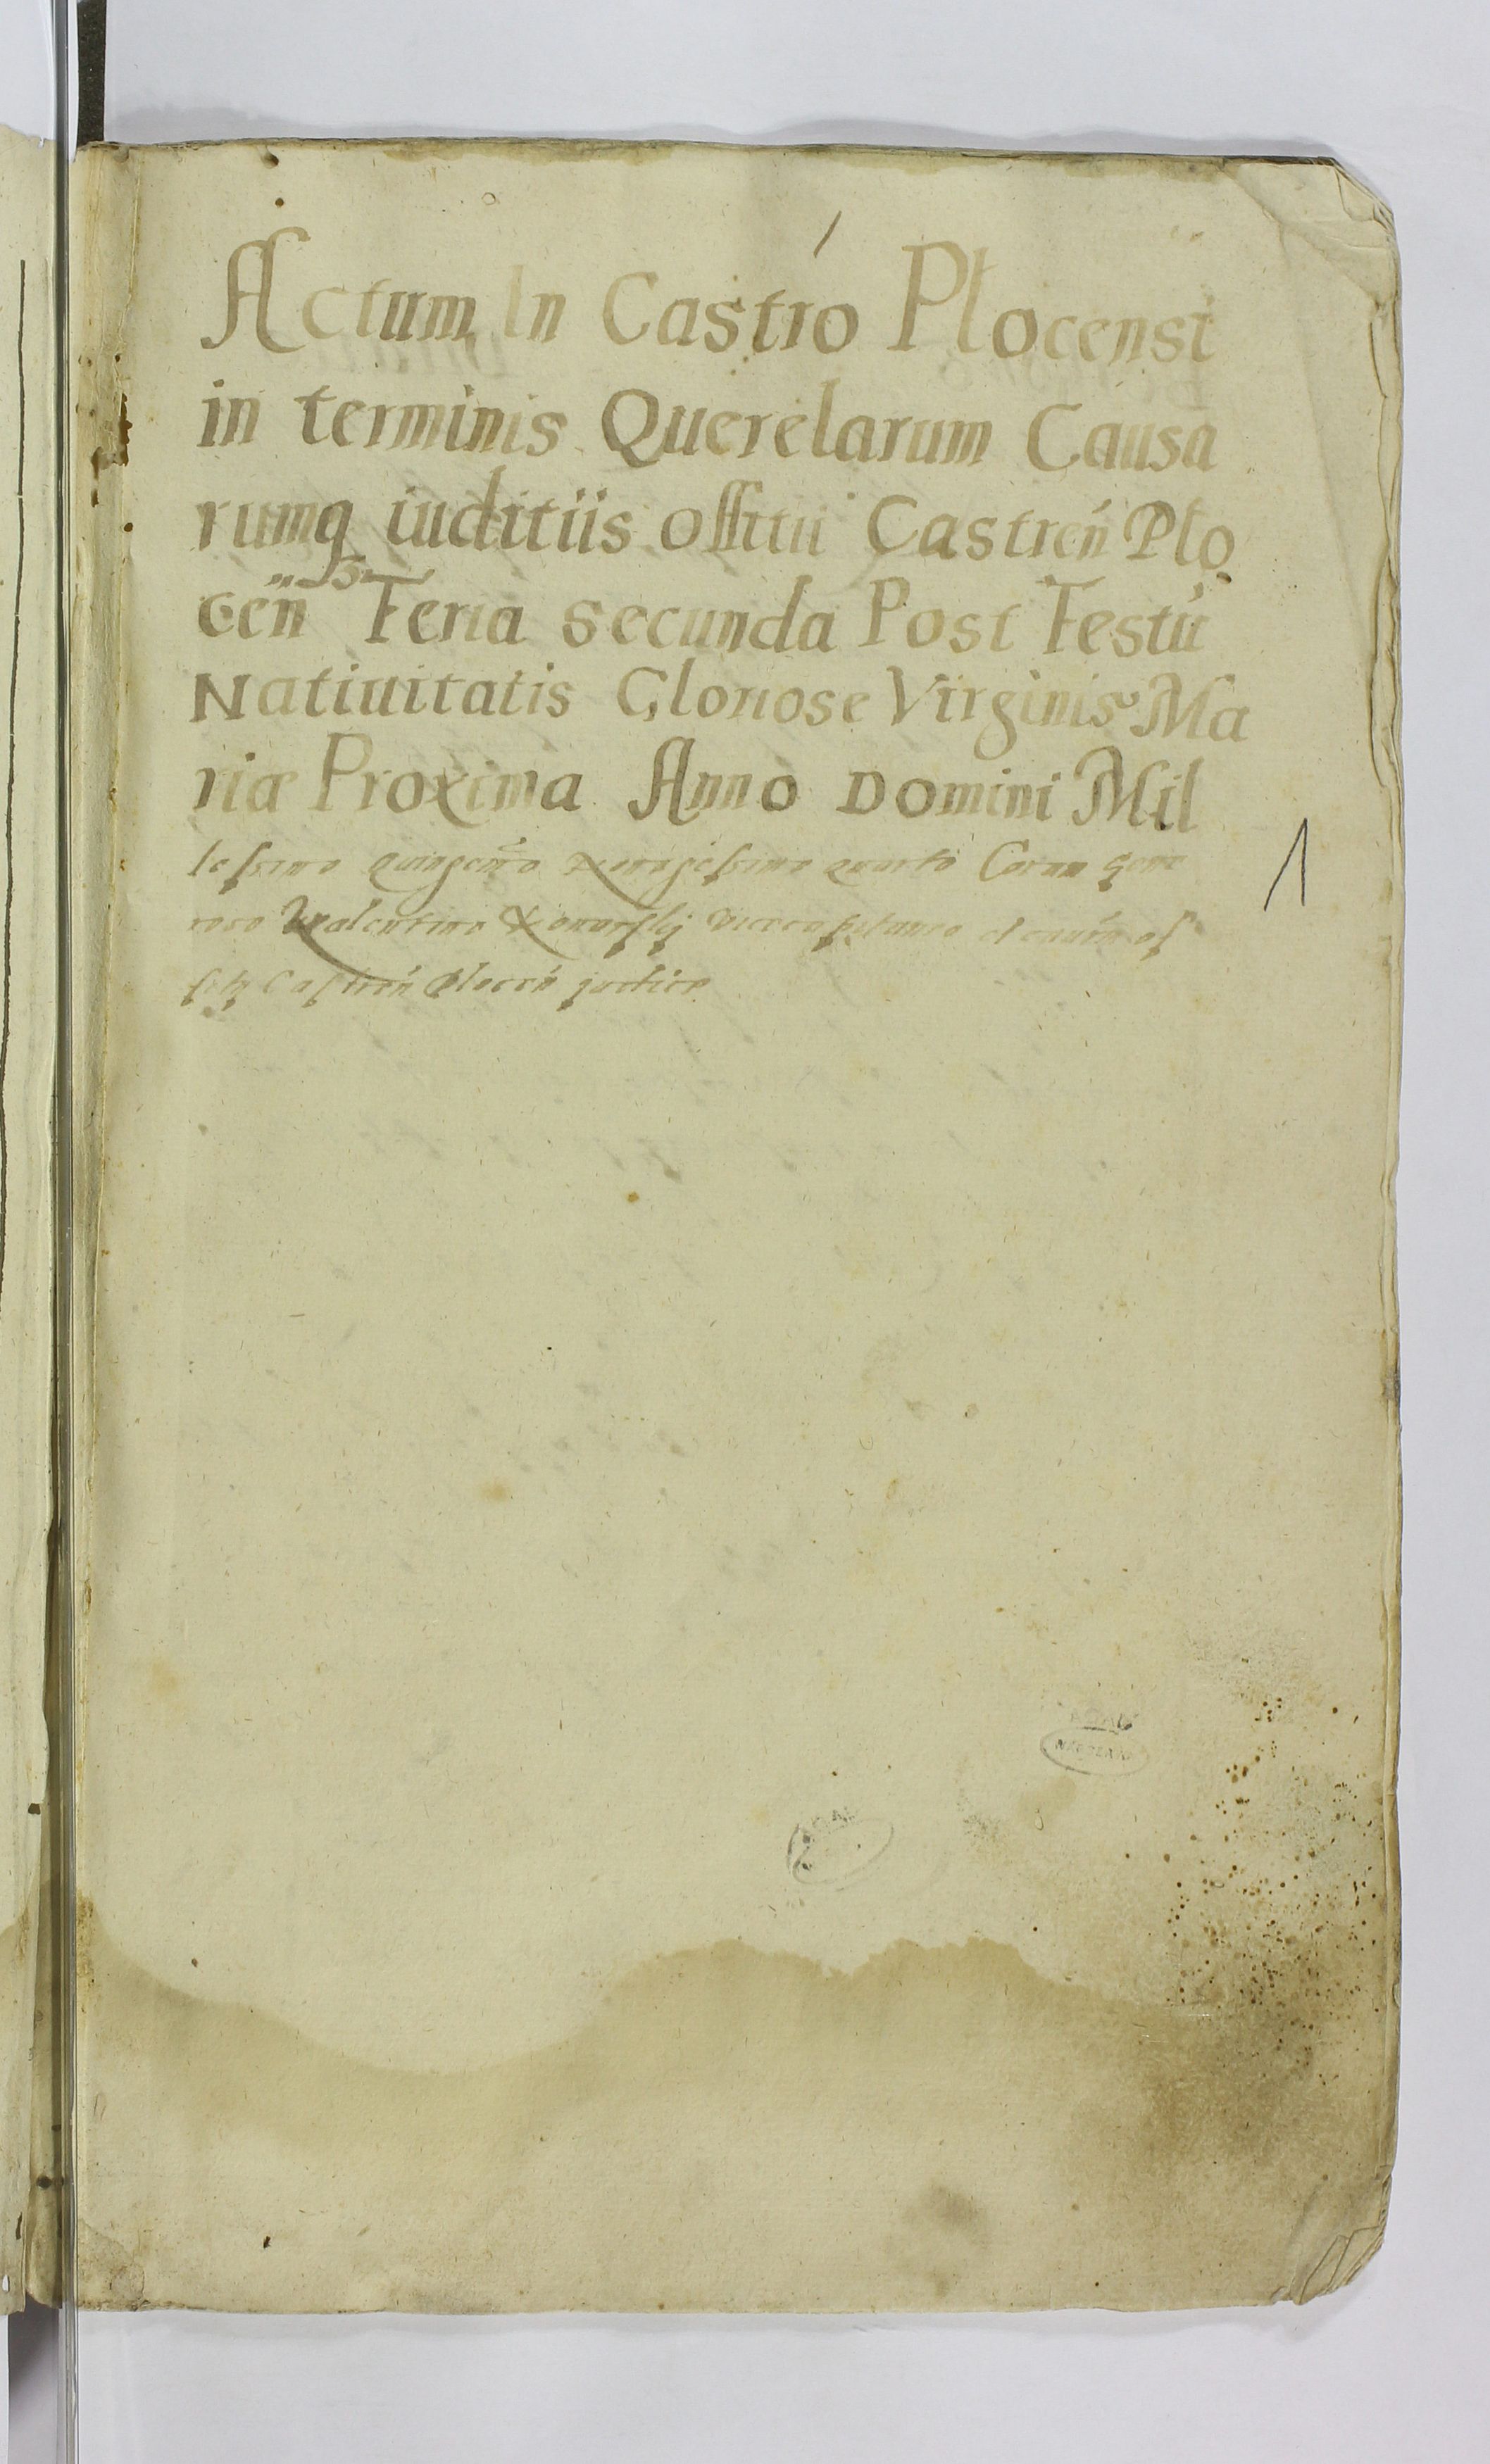 1
Actum In Castro Plocensi
in terminis Querelarum Causa
rumq iuditiis offitii Castren̄ Plo
cen̄ Feria secunda Post Festū
Natiuitatis Gloriose Virginis Ma
riæ Proxima Anno Domini Mil
lessimo quingen̄o nonagessimo quarto Coram gene
roso Valentino Vicecapitaneo et
Castren̄ Plocen̄ judice
1
AGAD